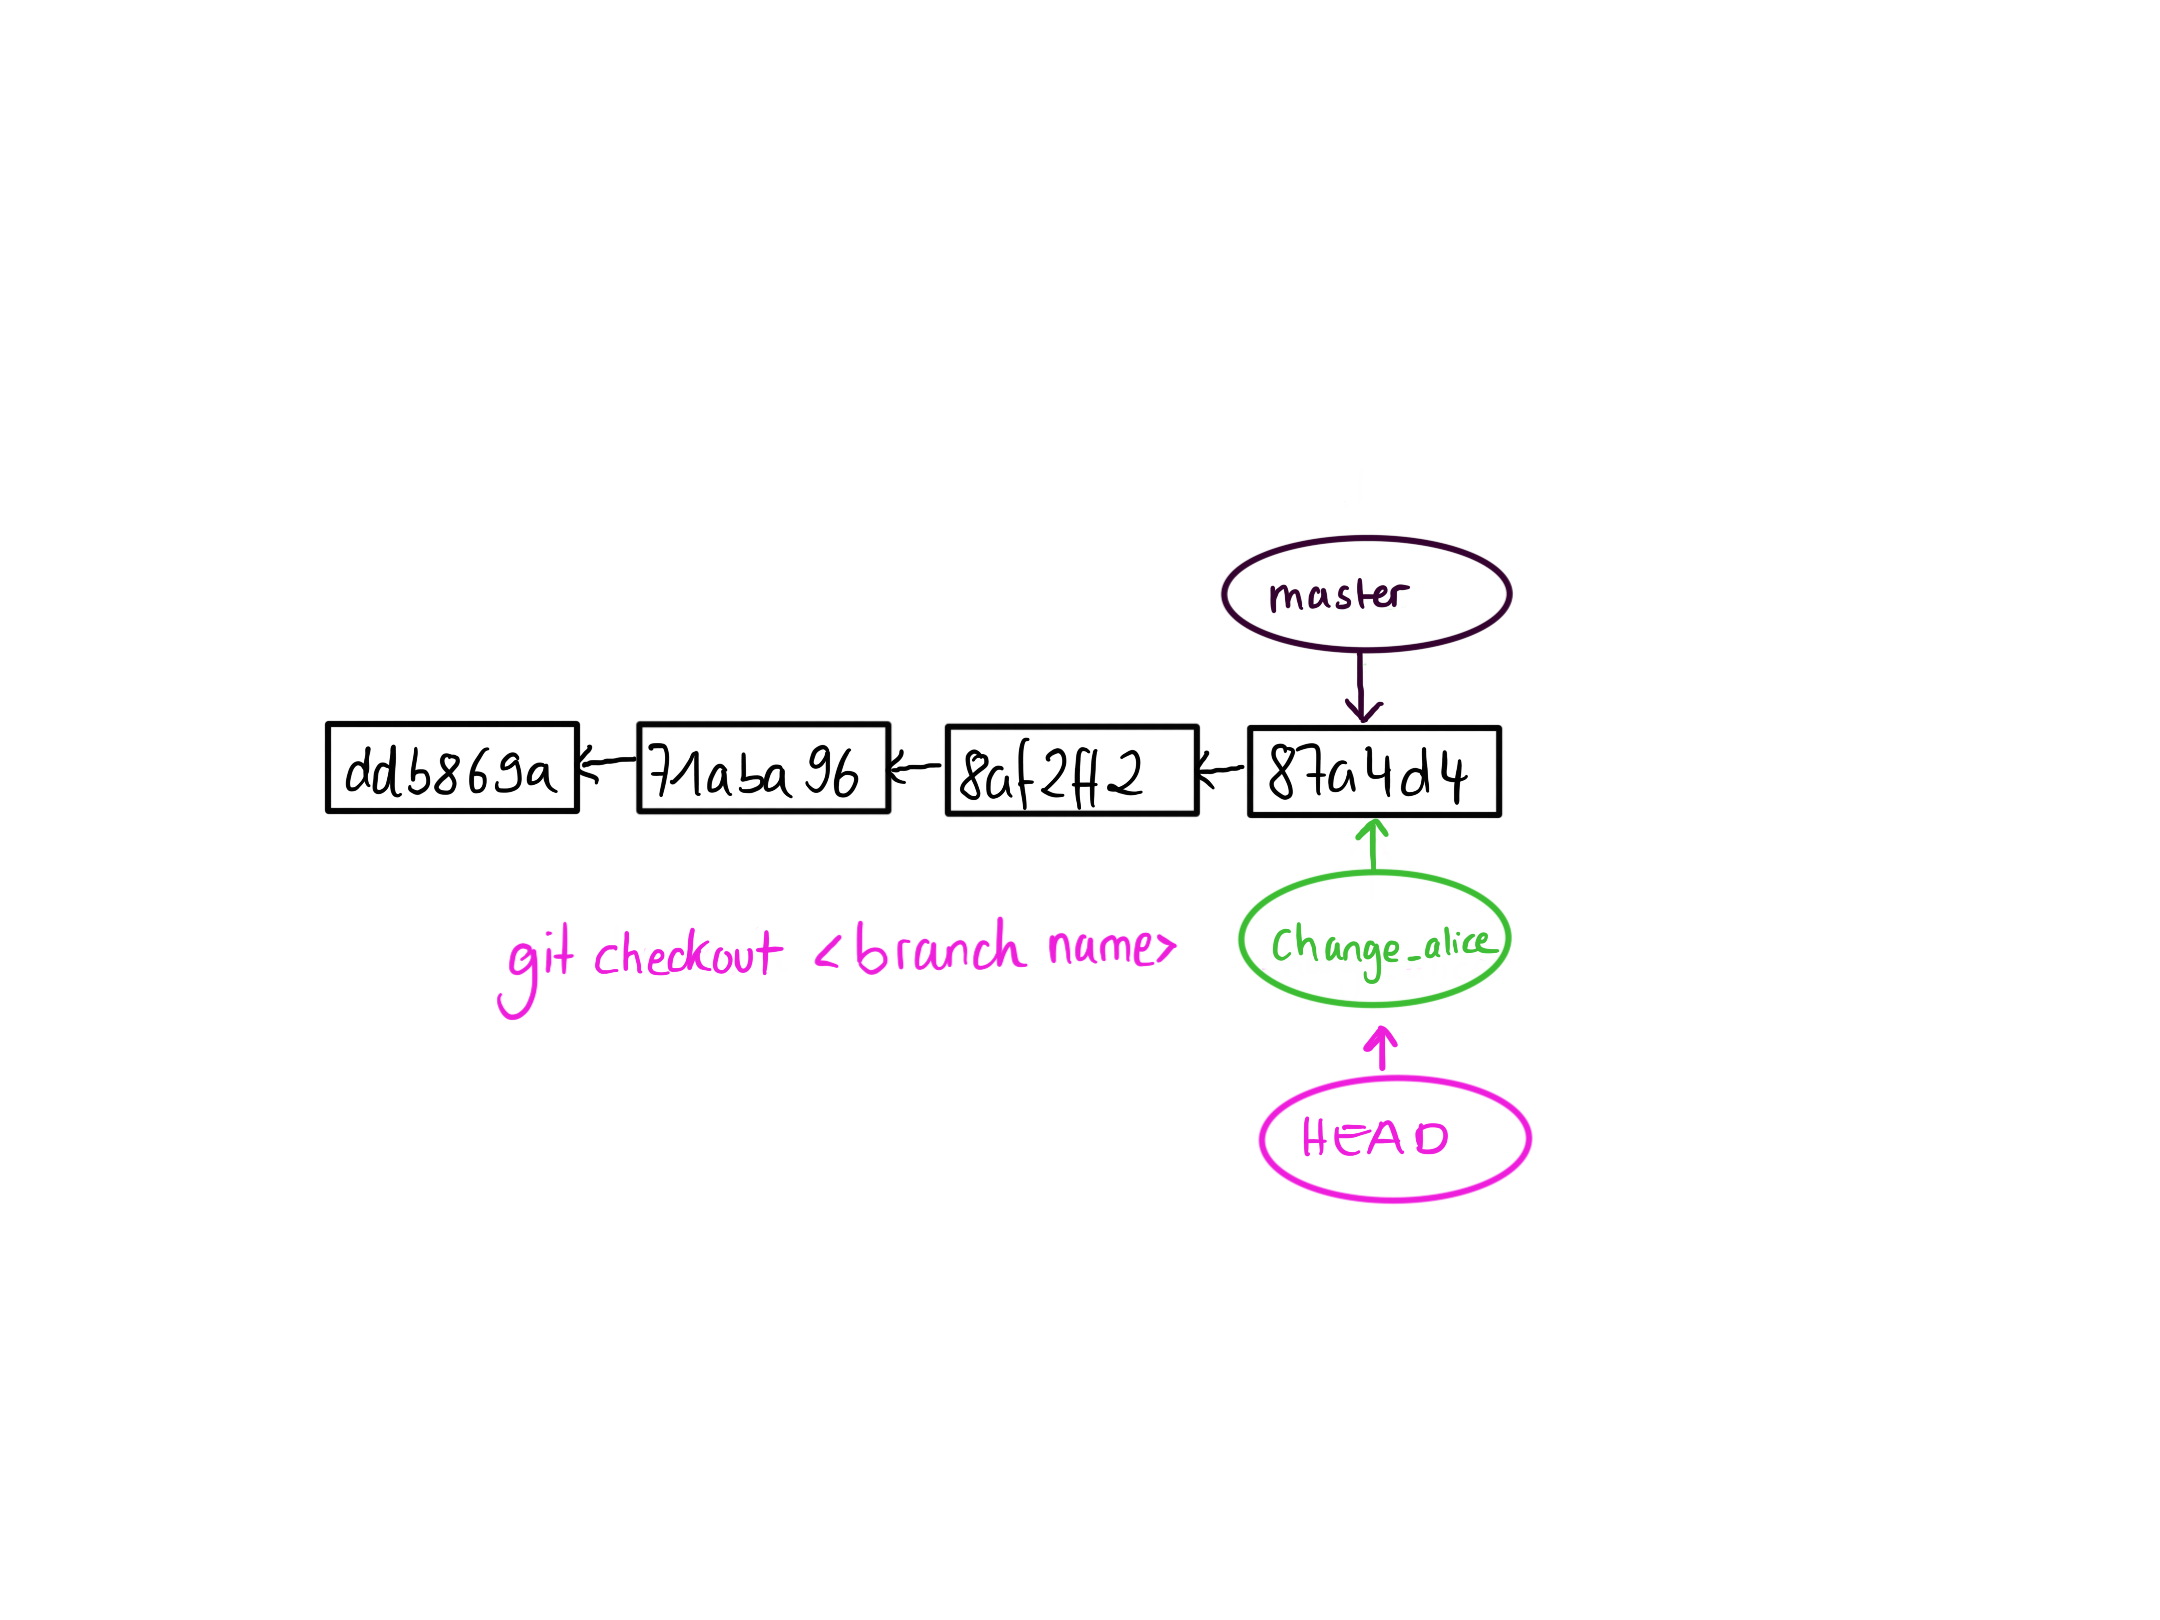 master
ddb869a 71aba96 8af2ff2 87a4d4
git checkout <branch name> change_alice
HEAD